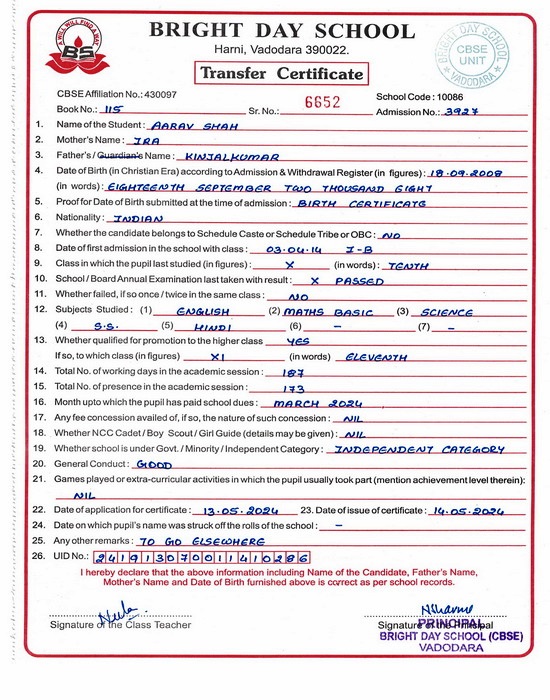 A WILL WILL FIND A WAY
BS
BRIGHT DAY SCHOOL
Harni, Vadodara 390022.
Transfer Certificate
BRIGHT DAY SCHOOL
CBSE
UNIT
VADODARA
CBSE Affiliation No.: 430097
6652
School Code : 10086
Book No.: 115 Sr. No.: Admission No.: 3927
1. Name of the Student : AARAV SHAH
2. Mother's Name : IRA
3. Father's / Guardian's Name : KINJALKUMAR
4. Date of Birth (in Christian Era) according to Admission & Withdrawal Register (in figures) : 18.09.2008
(in words) : EIGHTEENTH SEPTEMBER TWO THOUSAND EIGHT
5. Proof for Date of Birth submitted at the time of admission : BIRTH CERTIFICATE
6. Nationality : INDIAN
7. Whether the candidate belongs to Schedule Caste or Schedule Tribe or OBC : NO
8. Date of first admission in the school with class : 03.04.14 I-B
9. Class in which the pupil last studied (in figures) : X (in words) : TENTH
10. School / Board Annual Examination last taken with result : X PASSED
11. Whether failed, if so once / twice in the same class : NO
12. Subjects Studied : (1) ENGLISH (2) MATHS BASIC (3) SCIENCE
(4) S.S. (5) HINDI (6) – (7) –
13. Whether qualified for promotion to the higher class YES
If so, to which class (in figures) XI (in words) ELEVENTH
14. Total No. of working days in the academic session : 187
15. Total No. of presence in the academic session : 173
16. Month upto which the pupil has paid school dues : MARCH 2024
17. Any fee concession availed of, if so, the nature of such concession : NIL
18. Whether NCC Cadet / Boy Scout / Girl Guide (details may be given) : NIL
19. Whether school is under Govt. / Minority / Independent Category : INDEPENDENT CATEGORY
20. General Conduct : GOOD
21. Games played or extra-curricular activities in which the pupil usually took part (mention achievement level therein):
NIL
22. Date of application for certificate : 13.05.2024 23. Date of issue of certificate : 14.05.2024
24. Date on which pupil's name was struck off the rolls of the school : –
25. Any other remarks : TO GO ELSEWHERE
26. UID No.: 241913070011410286
I hereby declare that the above information including Name of the Candidate, Father's Name,
Mother's Name and Date of Birth furnished above is correct as per school records.
Signature of the Class Teacher Signature of the Principal
PRINCIPAL
BRIGHT DAY SCHOOL (CBSE)
VADODARA